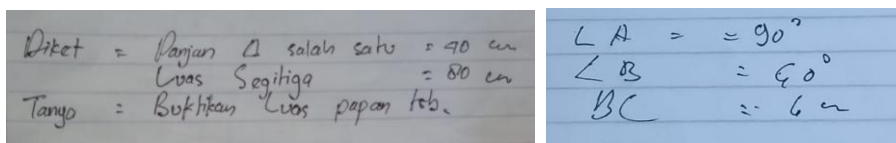 Diket = Panjan △ salah satu = 90 cm
Luas Segitiga = 80 cm
Tanya = Buktikan Luas papan tsb.
∠A = = 90°
∠B = 60°
BC = 6 cm